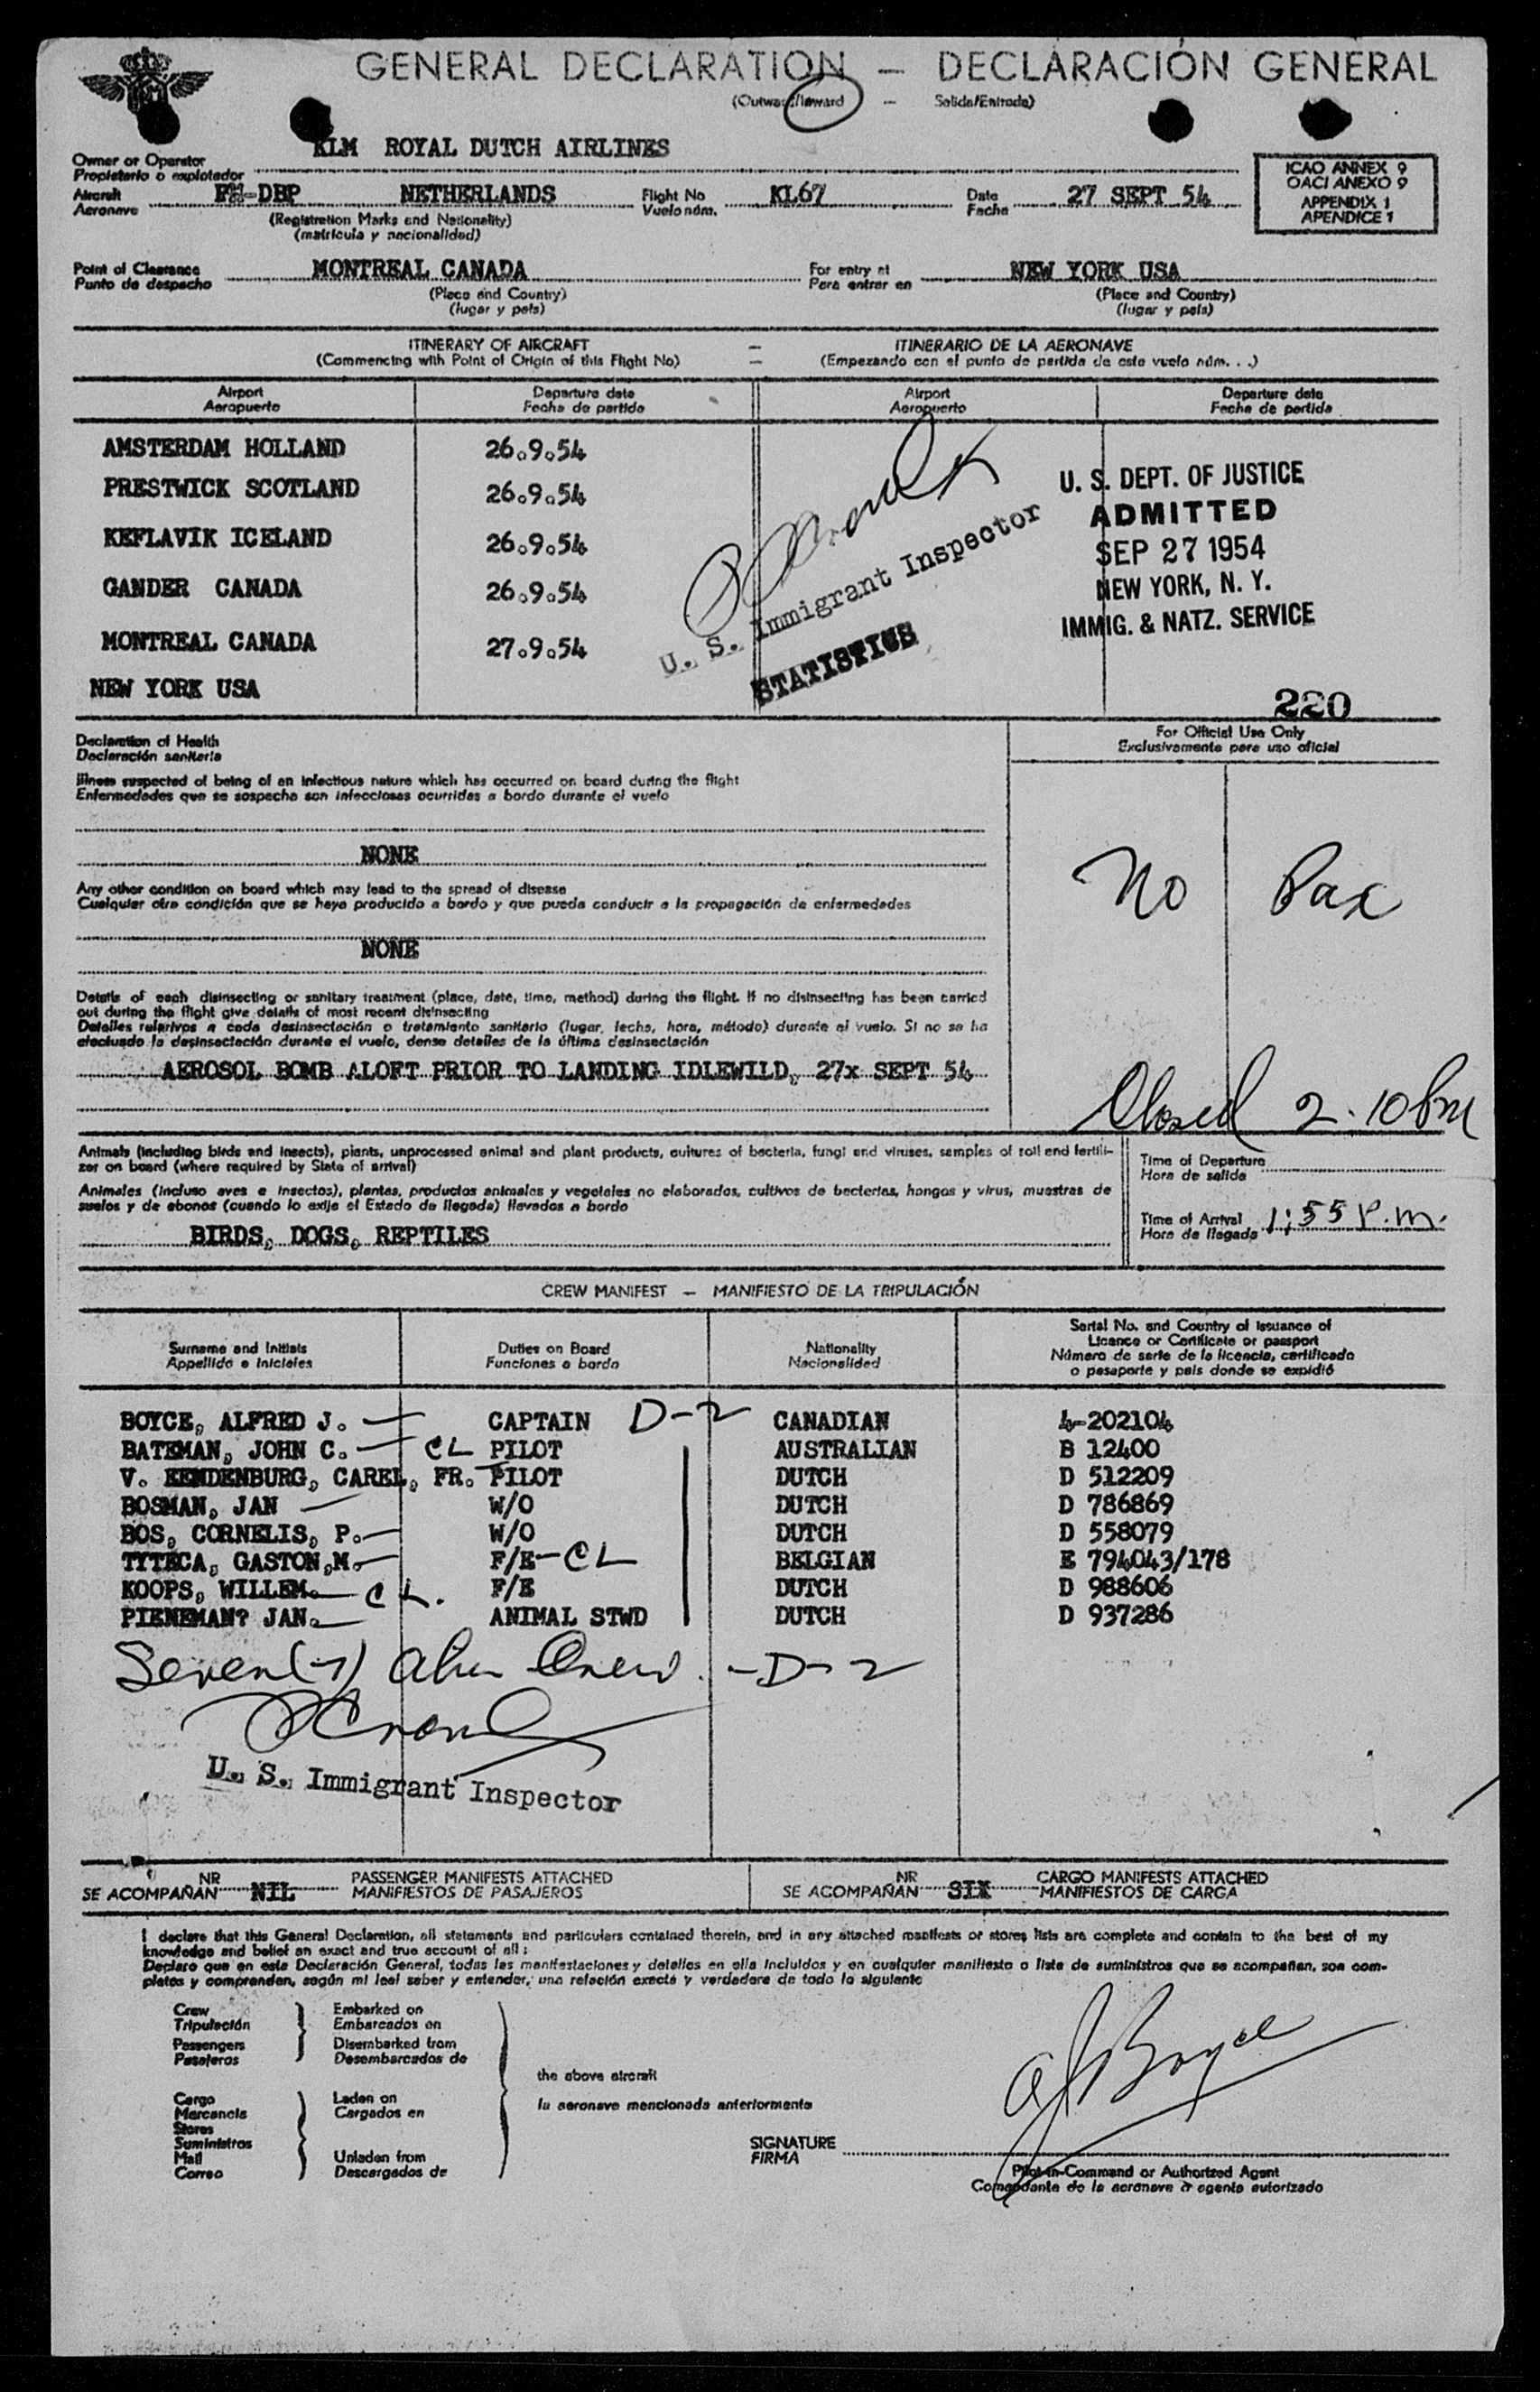 GENERAL DECLARATION — DECLARACIÓN GENERAL
(Outward/Inward) - Salida/Entrada)
KLM ROYAL DUTCH AIRLINES
Owner or Operator
Propietario o explotador
ICAO ANNEX 9
OACI ANEXO 9
APPENDIX 1
APENDICE 1
Aircraft
Aeronave
PH-DBP NETHERLANDS
Flight No
Vuelo núm.
KL67
Date
Fecha
27 SEPT 54
(Registration Marks and Nationality)
(matrícula y nacionalidad)
Point of Clearance
Punto de despacho
MONTREAL CANADA
For entry at
Para entrar en
NEW YORK USA
(Place and Country)
(lugar y país)
(Place and Country)
(lugar y país)
ITINERARY OF AIRCRAFT — ITINERARIO DE LA AERONAVE
(Commencing with Point of Origin of this Flight No) — (Empezando con el punto de partida de este vuelo núm. . .)
Airport
Aeropuerto
Departure date
Fecha de partida
Airport
Aeropuerto
Departure date
Fecha de partida
AMSTERDAM HOLLAND 26.9.54
PRESTWICK SCOTLAND 26.9.54
KEFLAVIK ICELAND 26.9.54
GANDER CANADA 26.9.54
MONTREAL CANADA 27.9.54
NEW YORK USA
U. S. Immigrant Inspector
STATISTICS
U. S. DEPT. OF JUSTICE
ADMITTED
SEP 27 1954
NEW YORK, N. Y.
IMMIG. & NATZ. SERVICE
220
Declaration of Health
Declaración sanitaria
For Official Use Only
Exclusivamente para uso oficial
Illness suspected of being of an infectious nature which has occurred on board during the flight
Enfermedades que se sospecha son infecciosas ocurridas a bordo durante el vuelo
NONE
Any other condition on board which may lead to the spread of disease
Cualquier otra condición que se haya producido a bordo y que pueda conducir a la propagación de enfermedades
NONE
No Pax
Details of each disinsecting or sanitary treatment (place, date, time, method) during the flight. If no disinsecting has been carried
out during the flight give details of most recent disinsecting
Detalles relativos a cada desinsectación o tratamiento sanitario (lugar, fecha, hora, método) durante el vuelo. Si no se ha
efectuado la desinsectación durante el vuelo, dense detalles de la última desinsectación
AEROSOL BOMB ALOFT PRIOR TO LANDING IDLEWILD, 27x SEPT 54
Closed 2.10 PM
Animals (including birds and insects), plants, unprocessed animal and plant products, cultures of bacteria, fungi and viruses, samples of soil and fertili-
zer on board (where required by State of arrival)
Animales (incluso aves e insectos), plantas, productos animales y vegetales no elaborados, cultivos de bacterias, hongos y virus, muestras de
suelos y de abonos (cuando lo exija el Estado de llegada) llevados a bordo
BIRDS, DOGS, REPTILES
Time of Departure
Hora de salida
Time of Arrival
Hora de llegada
1:55 P.m.
CREW MANIFEST — MANIFIESTO DE LA TRIPULACIÓN
Surname and Initials
Apellido e iniciales
Duties on Board
Funciones a bordo
Nationality
Nacionalidad
Serial No. and Country of Issuance of
Licence or Certificate or passport
Número de serie de la licencia, certificado
o pasaporte y país donde se expidió
BOYCE, ALFRED J. — CAPTAIN D-2 CANADIAN 4-202104
BATEMAN, JOHN C. — CL PILOT AUSTRALIAN B 12400
V. KENDENBURG, CAREL, FR. PILOT DUTCH D 512209
BOSMAN, JAN — W/O DUTCH D 786869
BOS, CORNELIS, P. — W/O DUTCH D 558079
TYTECA, GASTON,M. — F/E - CL BELGIAN E 794043/178
KOOPS, WILLEM. — CL. F/E DUTCH D 988606
PIENEMAN? JAN. — ANIMAL STWD DUTCH D 937286
Seven (7) alien Crew. - D-2
U. S. Immigrant Inspector
NR
SE ACOMPAÑAN NIL
PASSENGER MANIFESTS ATTACHED
MANIFIESTOS DE PASAJEROS
NR
SE ACOMPAÑAN SIX
CARGO MANIFESTS ATTACHED
MANIFIESTOS DE CARGA
I declare that this General Declaration, all statements and particulars contained therein, and in any attached manifests or stores lists are complete and contain to the best of my
knowledge and belief an exact and true account of all :
Declaro que en esta Declaración General, todas las manifestaciones y detalles en ella incluidos y en cualquier manifiesto o lista de suministros que se acompañan, son com-
pletos y comprenden, según mi leal saber y entender, una relación exacta y verdadera de todo lo siguiente
Crew
Tripulación
Passengers
Pasajeros
Embarked on
Embarcados en
Disembarked from
Desembarcados de
Cargo
Mercancía
Stores
Suministros
Mail
Correo
Laden on
Cargados en
Unladen from
Descargados de
the above aircraft
la aeronave mencionada anteriormente
SIGNATURE
FIRMA
AJ Boyce
Pilot-in-Command or Authorized Agent
Comandante de la aeronave o agente autorizado